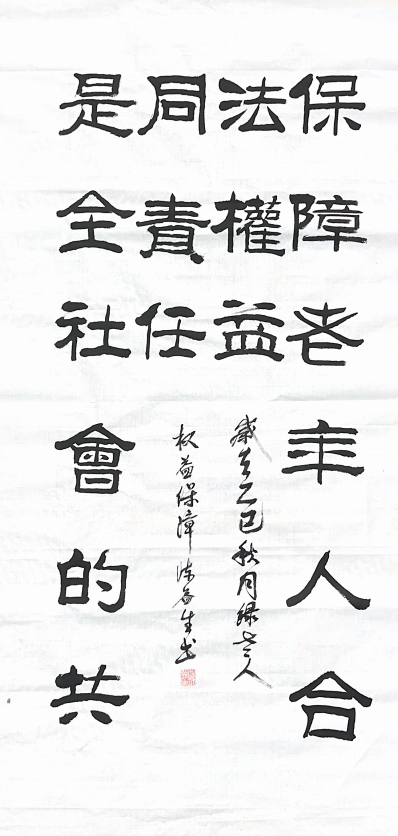 保障老年人合
法權益
是全社會的共
同責任
歲在乙巳秋月録老人
权益保障陈生书